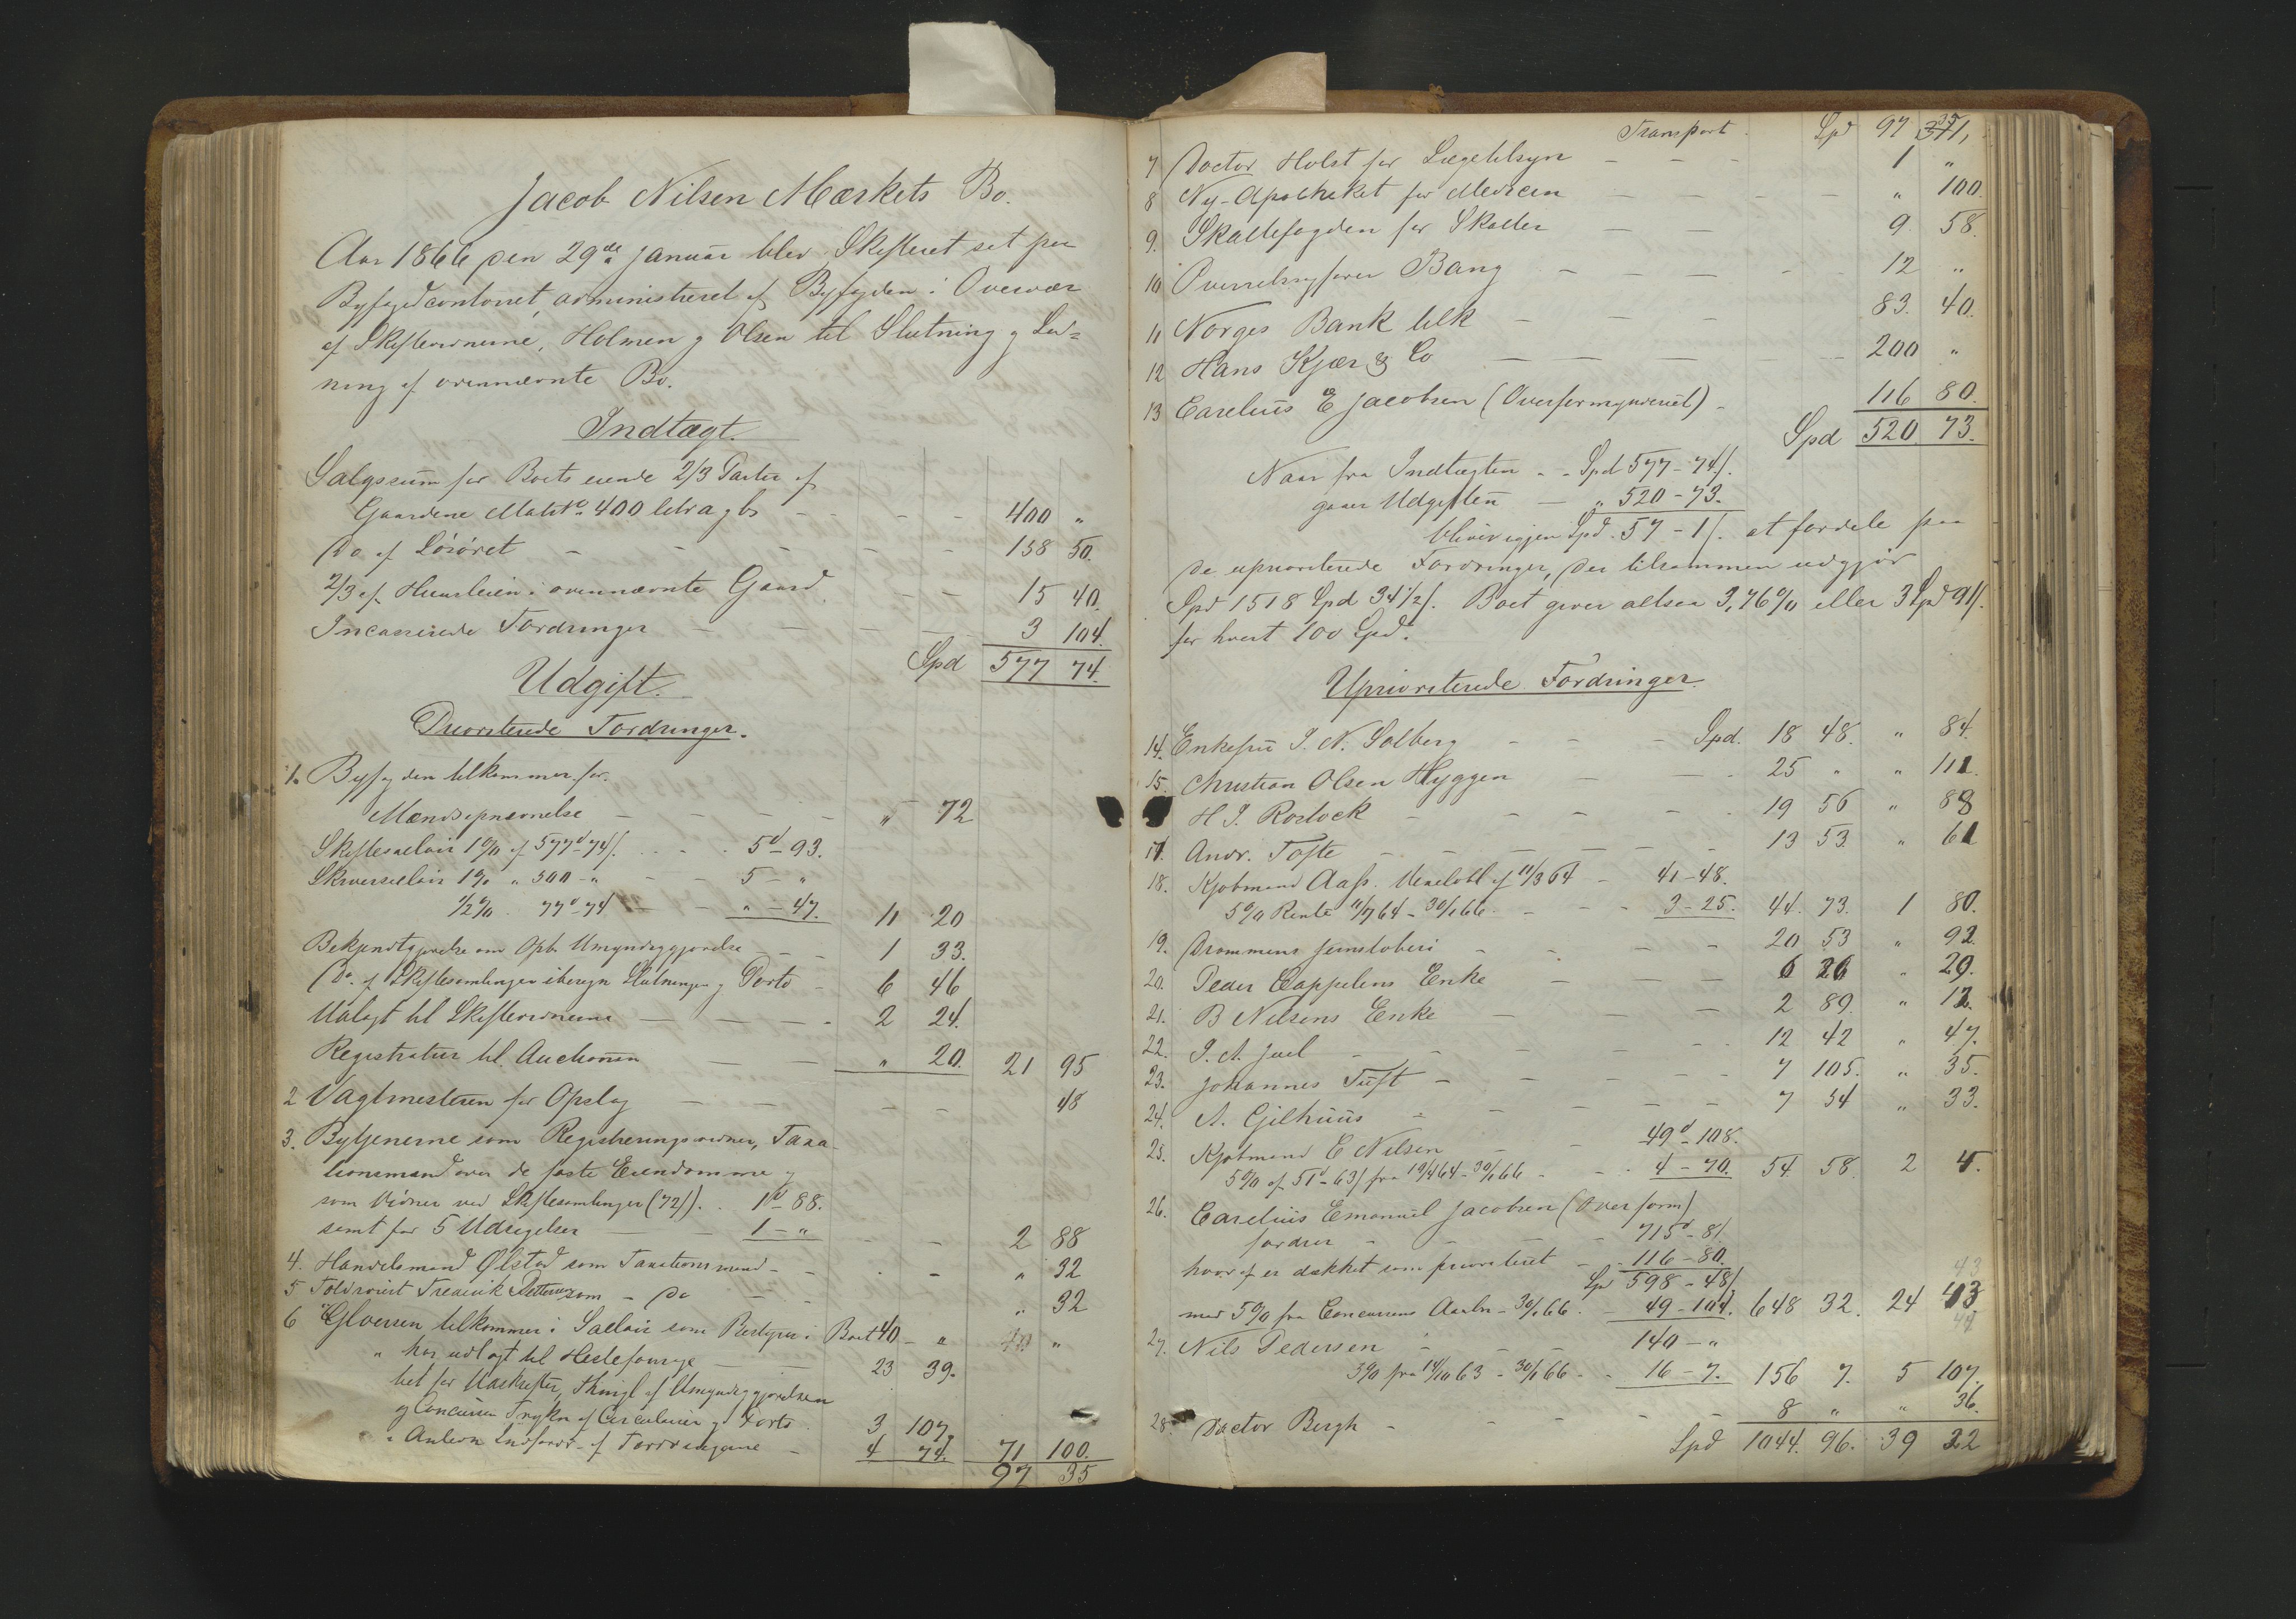 Jacob Nilsen Mærkets Bo.
Aar 1866 den 29de Januar blev Skifteret sat paa
Byfogedcontoiret, administreret af Byfogden i Overvær
af Skiftevidnerne, Holmen og Olsen til Slutning og Lud=
ning af ovennævnte Bo.
Indtægt.
Salgssum for Boets eiende 2/3 Parter af
Gaardene Matr No 400 litr a og b - - - - 400 "
Do af Løsøret - - - - - - 158 50.
2/3 af Huusleien i ovennævnte Gaard - - 15 40.
Incasserede Fordringer - - - - - 3 104.
Spd 577 74.
Udgift.
Prioriterede Fordringer.
1. Byfogden tilkommer for
Mændsopnævnelse - - - - " 72
Skiftesalair 1% af 577d-74/. - - 5d-93.
Skriversalair 1% " 500-" - - 5-"
1/2% . 77d-74 - - "-47. 11 20
Bekjendtgjørelse om Opb. Umyndiggjørelse - - 1 33.
Do. af Skiftesamlinger iberegn Slutningen og Porto - 6 46
Udlagt til Skiftevidnerne - - - 2 24.
Registratur til Auctionen - - " 20. 21 95
2 Vagtmesteren for Opslag - - - - 48
3. Bytjenerne som Registreringsvidner, Taxa-
tionsmænd over de faste Eiendomme og
som Vidner ved Skiftesamlinger (72/). . 1d-88.
samt for 5 Udsigelser - - 1-" - - 2 88
4. Handelsmand Ølstad som Taxationsmand - - - " 32
5 Toldroiert Frederik Pettersen som - Do - - " 32
6 Gloersen tilkommer i Sallair som Bestyrer i Boet 40-" 40 "
" har udlagt til Hestefourage - - 23 39.
bet for Udskrifter, Thingl. af Umyndiggjørelsen
og Concursen Trykn af Circulairer og Porto . 3 107.
" Anledn Indfordr. af Fordringerne - 4 74. 71 100.
97 35
Transport . Spd 97 35 311,
7 Doctor Holst for Lægetilsyn - - - 1 "
8 Ny-Apotheket for Medicin - - - - " 100.
9. Skattefogden for Skatter - - 9 58.
10 Overretssagfører Bang - - - - - 12 "
11 Norges Bank tilk - - - 83. 40.
12 Hans Kjær & Co - - - - 200 "
13 Carelius E Jacobsen (Overformynderiet) - 116 80.
Spd 520 73.
Naar fra Indtægten - - Spd 577-74/.
gaaer Udgiften - " 520-73.
bliver igjen Spd. 57-1/. at fordele paa
de uprioriterede Fordringer, der tilsammen udgjør
Spd 1518 Spd 34 1/2/. Boet giver altsaa 3,76% eller 3 Spd 91/.
for hvert 100 Spd.
Uprioriterede Fordringer.
14. Enkefru I. N. Solberg - - - Spd. 18 48. " 84.
15. Christian Olsen Hyggen - - - 25 " " 111.
H I. Rostock - - - - - 19 56 " 88
17. Andr. Tofte - - - - - - 13 53 " 61
18. Kjøbmand Aass. Vexelobl af 11/3 64 - 41-48.
5% Rente 11/7 64-30/1 66. - - - 3-25. 44. 73. 1 80.
19. Drammens Jernstøberi - - - - 20 53 " 92.
20. Peder Cappelens Enke - - - 6 26 " 29.
21. B Nilsens Enke - - - 2 89. " 12.
22. I. A. Juel - - - - - 12 42 " 47.
23. Johannes Tuft - - - - - 7 105. " 35.
24. A. Gilhuus - - - - - 7 54 " 33.
25. Kjøbmand E Nilsen - - 49d-108.
5% af 51d-63/ fra 19/4 64-30/1 66 - - - 4-70. 54 58. 2 4.
26. Carelius Emanuel Jacobsen (Overform)
fordrer - - - 715d-8/.
hvoraf er dækket som prioriteret - - 116-80.
Spd 598-48/
med 5% fra Concursens Aabn-30/1 66. - 49-104. 648 32. 24 43
27. Nils Pedersen - - - 140-"
3% fra 14/10 63-30/1 66- - 16-7. 156 7. 5 107.
28. Doctor Bergh - - - - - 8 " " 36.
Spd 1044. 96. 39 22